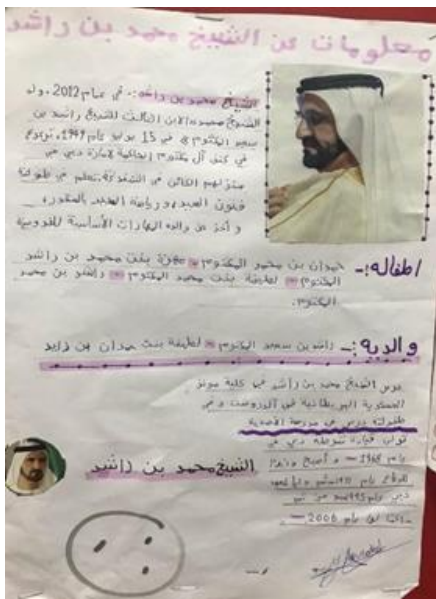 معلومات عن الشيخ محمد بن راشد
الشيخ محمد بن راشد:- في عام 2012، ولد
الشيخ محمد الابن الثالث للشيخ راشد بن
سعيد المكتوم في 15 يوليو عام 1949، ترعرع
في كنف آل مكتوم الحاكمة لإمارة دبي في
منزلهم الكائن في الشندغة، تعلم في طفولته
فنون الصيد، ورياضة الصيد بالصقور،
و أخذ عن والده المهارات الأساسية للفروسية
اطفاله:- حمدان بن محمد المكتوم مهرة بنت محمد بن راشد
المكتوم لطيفة بنت محمد المكتوم راشد بن محمد
المكتوم.
والديه:- راشد بن سعيد المكتوم لطيفة بنت حمدان بن زايد
درس الشيخ محمد بن راشد في كلية مونز
العسكرية البريطانية في ألدروشت وفي
طفولته درس في مدرسة الأحمدية
قيادة شرطة دبي في
عام 1968 و أصبح
للدفاع عام
دبي عام 1995
حاكما لها عام 2006
الشيخ محمد بن راشد